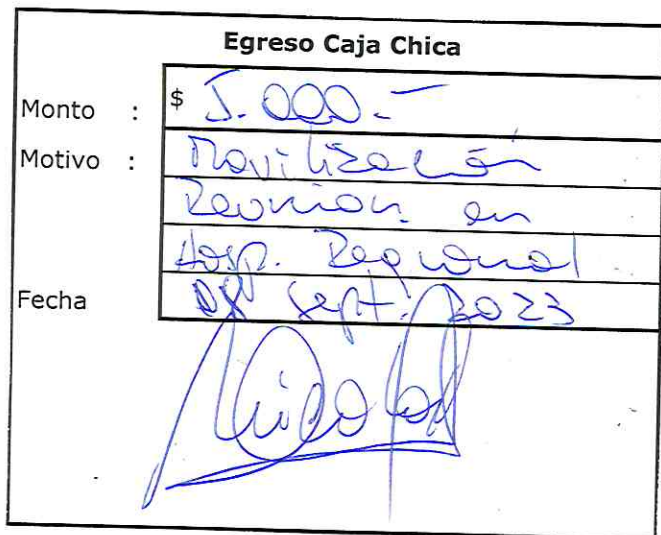 Egreso Caja Chica
Monto : $ 5.000.-
Motivo : Movilización
Reunion en
Hosp. Regional
Fecha 08 sept. 2023